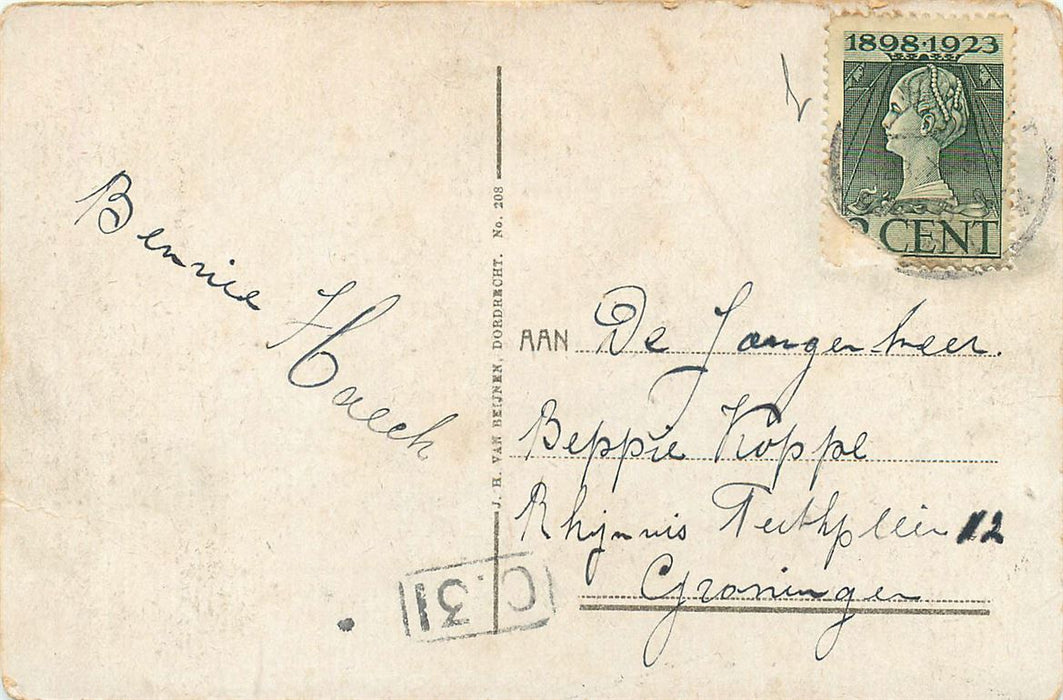 1898·1923
2 CENT
Bennie
AAN De Jongenheer.
Beppie Koppe
Rhijnvis Feithplein 12
Groningen
J. H. VAN BEIJNEN, DORDRECHT. No. 208
C.31